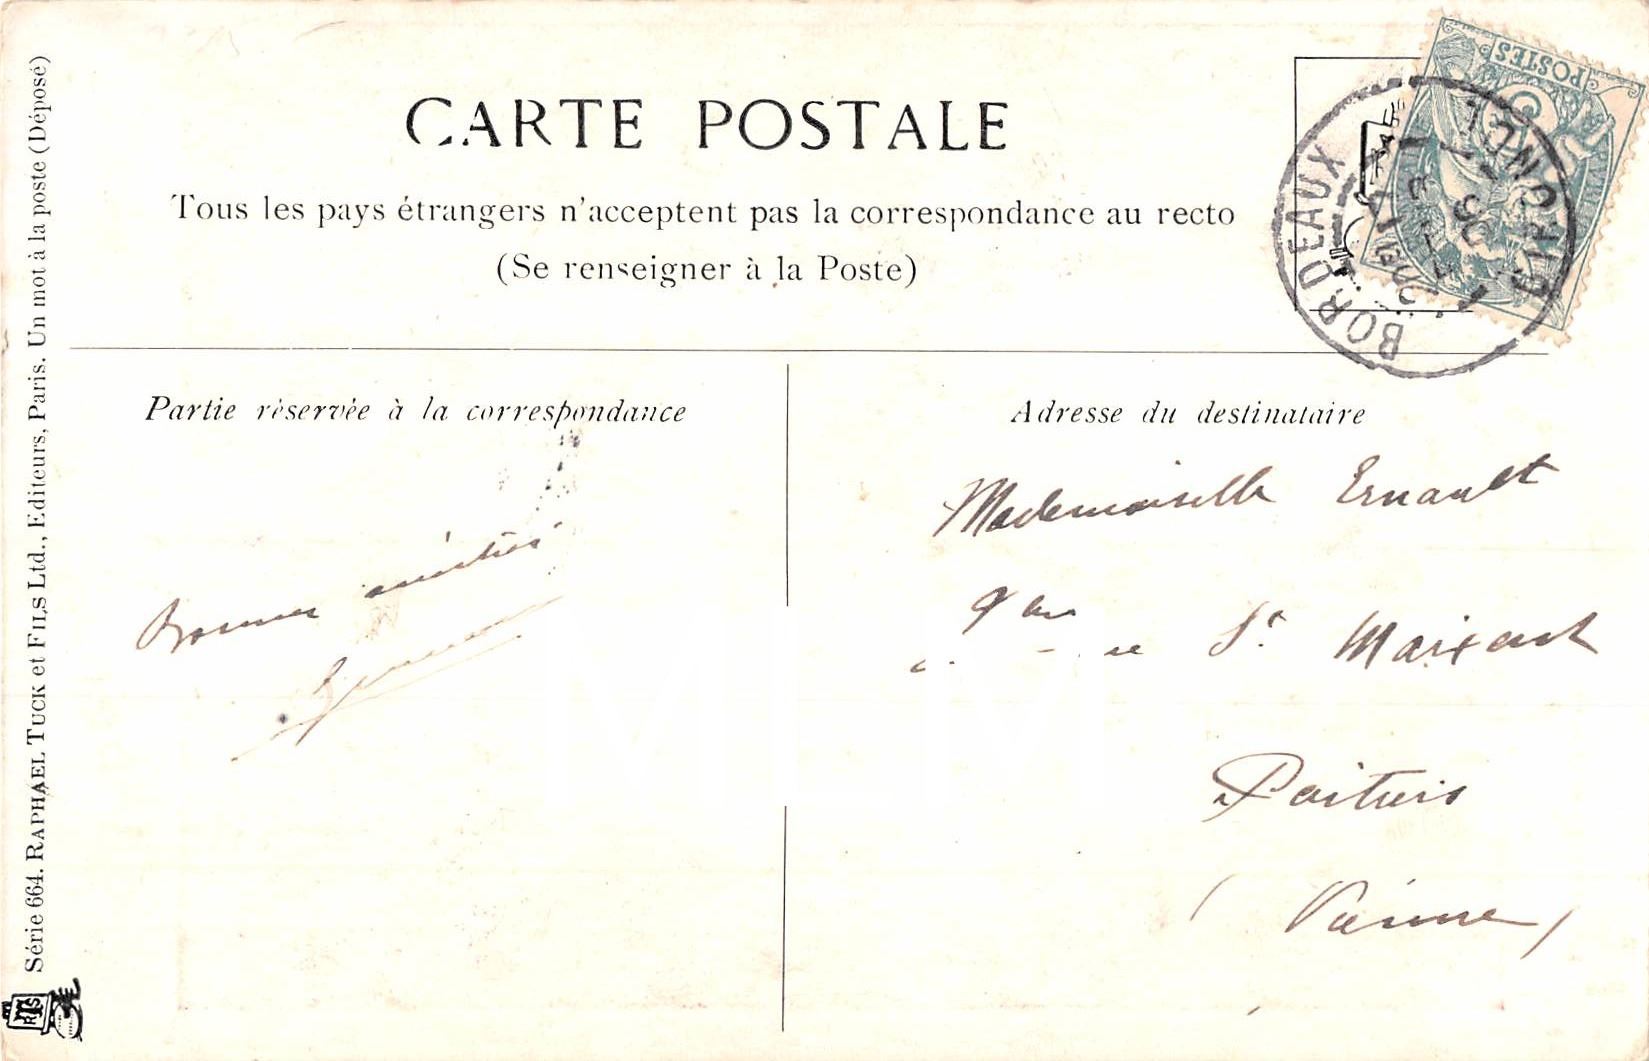 CARTE POSTALE
Tous les pays étrangers n'acceptent pas la correspondance au recto
(Se renseigner à la Poste)
POSTES
BORDEAUX
GIRONDE
Partie réservée à la correspondance
Bonnes amitiés
Adresse du destinataire
Mademoiselle Ernault
St Maixent
Poitiers
(Vienne)
Série 664. RAPHAEL TUCK et FILS Ltd., Editeurs, Paris. Un mot à la poste (Déposé)